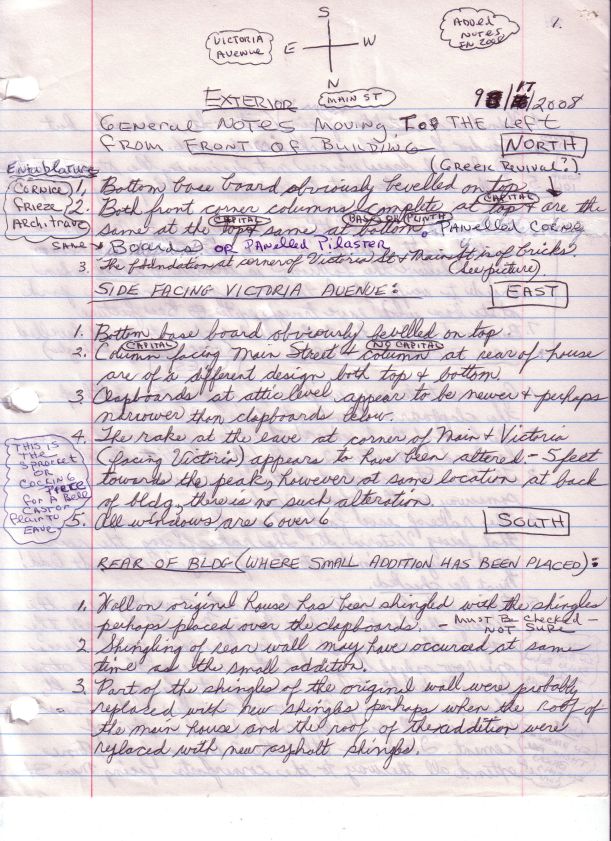 S
VICTORIA
AVENUE
E W
N
MAIN ST
ADDED
NOTES
IN 2008
1.
EXTERIOR
9/17/2008
GENERAL NOTES MOVING TO THE LEFT
FROM FRONT OF BUILDING
NORTH
(GREEK REVIVAL?)
Entablature
CORNICE
FRIEZE
ARCHITRAVE
1. Bottom base board obviously bevelled on top
CAPITAL
2. Both front corner columns complete at top & are the
CAPITAL BASE OR PLINTH
same at the top & same at bottom. PANELLED CORNER
SAME → BOARDS OR PANELLED PILASTER
3. The foundation at corner of Victoria St & Main St is of bricks.
(See picture)
SIDE FACING VICTORIA AVENUE:
EAST
1. Bottom base board obviously bevelled on top
CAPITAL NO CAPITAL
2. Column facing Main Street & column at rear of house
are of a different design both top & bottom.
3. Clapboards at attic level appear to be newer & perhaps
narrower than clapboards below.
4. The rake at the eave at corner of Main & Victoria
(facing Victoria) appears to have been altered - 5 feet
towards the peak, however at same location at back
of bldg, there is no such alteration.
THIS IS
THE
SPROCKET
OR
COCKING PIECE
FOR A BELL
CAST OR
EAVE
5. All windows are 6 over 6
SOUTH
REAR OF BLDG (WHERE SMALL ADDITION HAS BEEN PLACED):
1. Wall on original house has been shingled with the shingles
perhaps placed over the clapboards. - MUST BE CHECKED -
NOT SURE
2. Shingling of rear wall may have occurred at same
time as the small addition.
3. Part of the shingles of the original wall were probably
replaced with new shingles perhaps when the roof of
the main house and the roof of the addition were
replaced with new asphalt shingles.